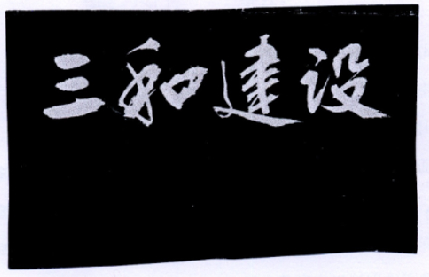 三和建设